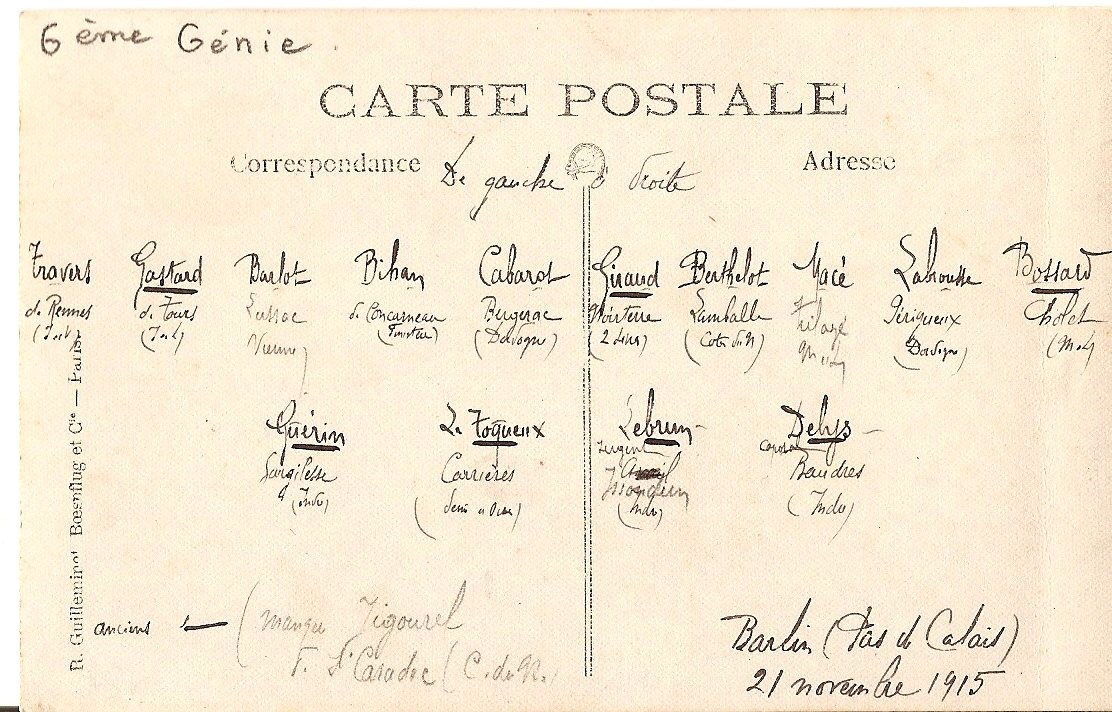 6ème Génie.
CARTE POSTALE
Correspondance Adresse
De gauche à droite
Travers Gastard Barlot Bihan Cabarot Giraud Berthelot Macé Labrousse Bossard
de Rennes de Tours Lussac de Concarneau Bergerac Lamballe Périgueux Cholet
Vienne (Finistère) (Dordogne) (2 Sèvres) (Côtes du N) (Dordogne) (M.L)
Guérin Le Toqueux Lebrun Delys
sergent caporal
Gargilesse Carrières Issoudun Baudres
(Indre) (Seine et Oise) (Indre) (Indre)
anciens (manque Tigourel
St Caradec (C. du N.)
Barlin (Pas de Calais)
21 novembre 1915
R. Guilleminot, Bœspflug et Cie — Paris